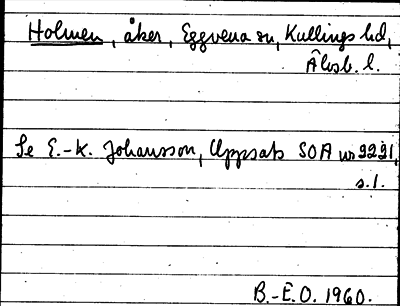 Holmen, åker, Eggvena sn, Kullings hd,
Älvsb. l.
Se E.-K. Johansson, Uppsats SOA nr 2291,
s.1.
B.-E.O. 1960.